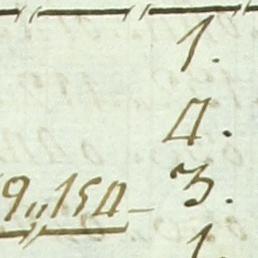 1.
4.
9,,154- 3.
1.